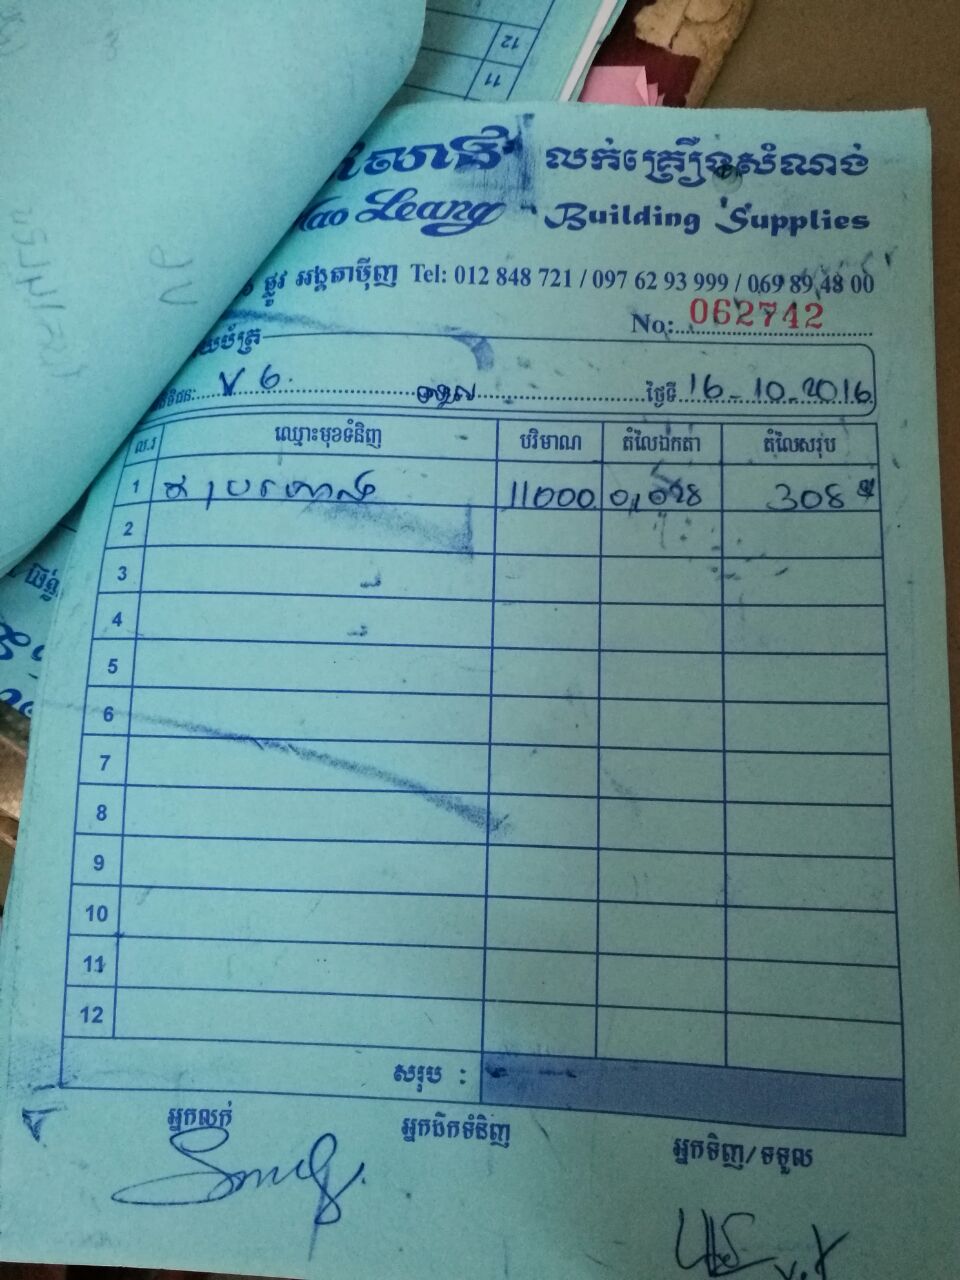 12
11
លក់គ្រឿងសំណង់
Leang Building Supplies
ផ្លូវ អង្គតាម៉ិញ Tel: 012 848 721 / 097 62 93 999 / 069 89 48 00
No: 062742
V 6. ទទួល ថ្ងៃទី 16-10-2016
ល.រ ឈ្មោះមុខទំនិញ បរិមាណ តំលៃឯកតា តំលៃសរុប
1 11000 0,028 308
2
3
4
5
6
7
8
9
10
11
12
សរុប :
អ្នកលក់ អ្នកដឹកទំនិញ អ្នកទិញ/ទទួល